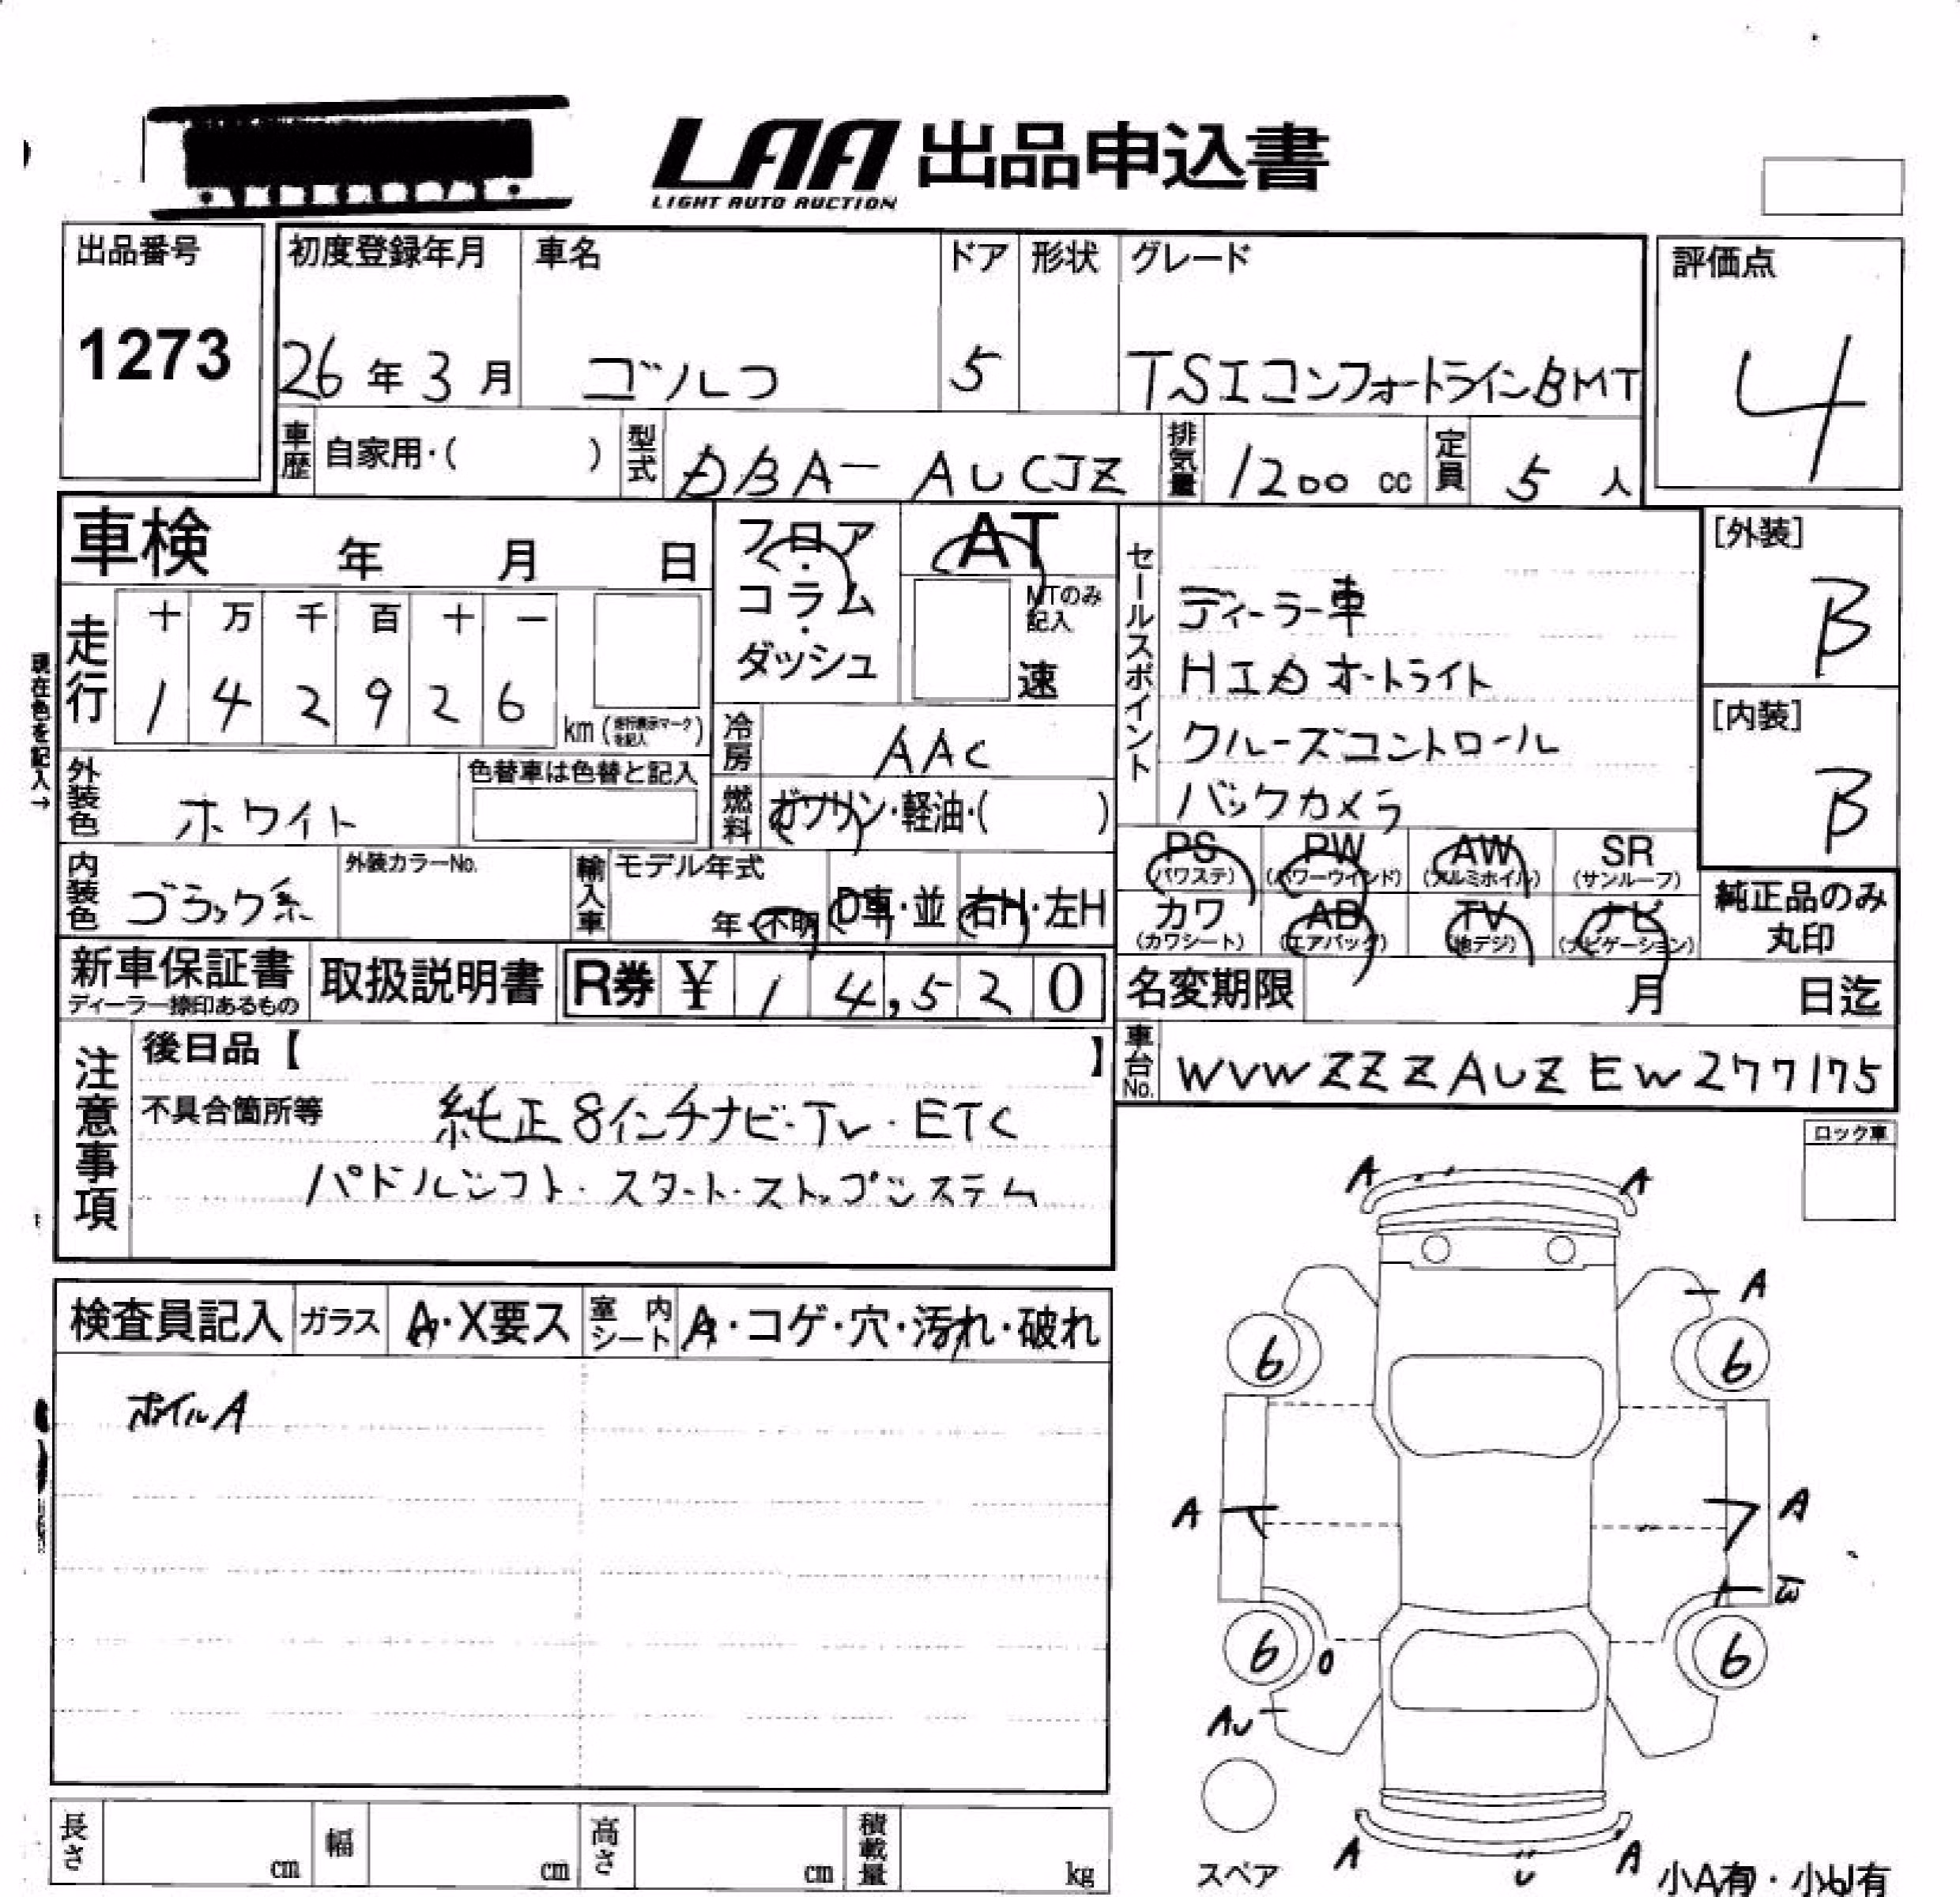 LAA 出品申込書
LIGHT AUTO AUCTION
出品番号
1273
初度登録年月
26年3月
車名
ゴルフ
ドア
5
形状
グレード
TSIコンフォートラインBMT
評価点
4
車歴 自家用・( )
型式 DBA-AUCJZ
排気量 1200 cc
定員 5人
車検 年 月 日
走行
十 万 千 百 十 一
1 4 2 9 2 6
km (走行表示マークを記入)
現在色を記入→
フロア・コラム・ダッシュ
AT
MTのみ記入
速
冷房 AAC
燃料 ガソリン・軽油・( )
セールスポイント
ディーラー車
HIDオートライト
クルーズコントロール
バックカメラ
[外装]
B
[内装]
B
外装色 ホワイト
色替車は色替と記入
内装色 ブラック系
外装カラーNo.
輸入車 モデル年式
年・不明 D車・並 右H・左H
PS (パワステ) PW (パワーウインド) AW (アルミホイル) SR (サンルーフ)
カワ (カワシート) AB (エアバッグ) TV (地デジ) ナビ (ナビゲーション)
純正品のみ丸印
新車保証書
ディーラー捺印あるもの
取扱説明書
R券 ¥ 14,520
名変期限 月 日迄
車台No. WVWZZZAUZEW277175
注意事項
後日品【 】
不具合箇所等 純正8インチナビ・TV・ETC
パドルシフト・スタート・ストップシステム
ロック車
検査員記入 ガラス A・X要ス 室内シート A・コゲ・穴・汚れ・破れ
ホイルA
A A
A
6 6
A A
W
6 6
AU
スペア
A A
小A有・小U有
長さ cm 幅 cm 高さ cm 積載量 kg